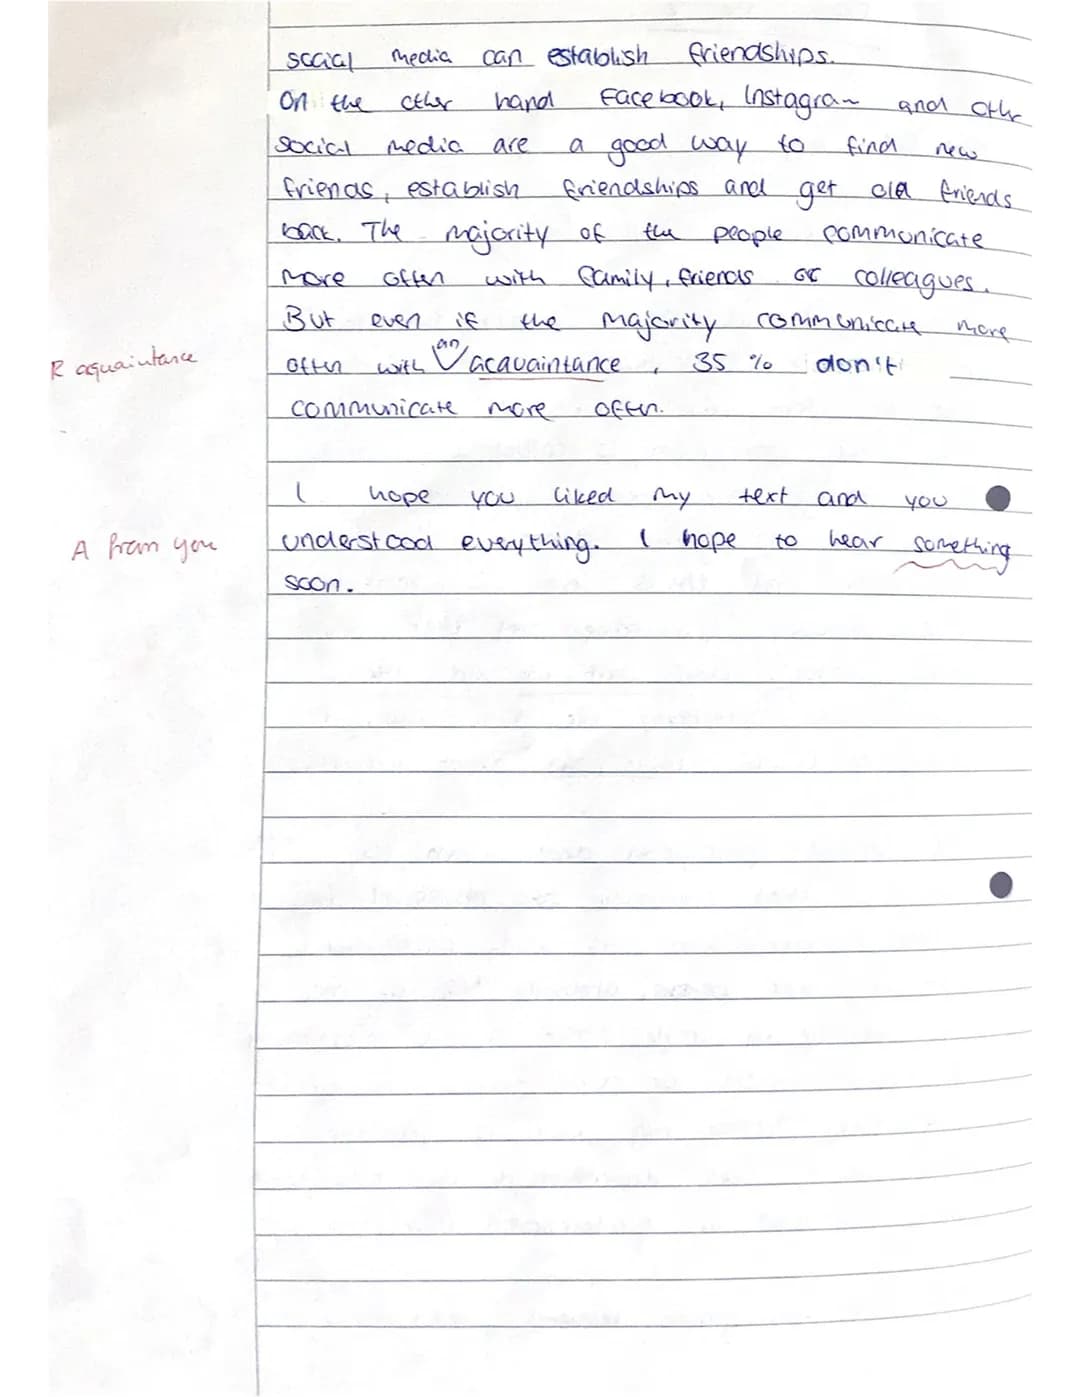 social media can establish friendships.
On the other hand Facebook, Instagram and other
social media are a good way to find new
friends, establish friendships and get old friends
back. The majority of the people communicate
more often with family, friends or colleagues.
But even if the majority communicate more
an
R aquaintance often with acquaintance, 35 % don't
communicate more often.
I hope you liked my text and you
A from you understood everything. I hope to hear something
soon.